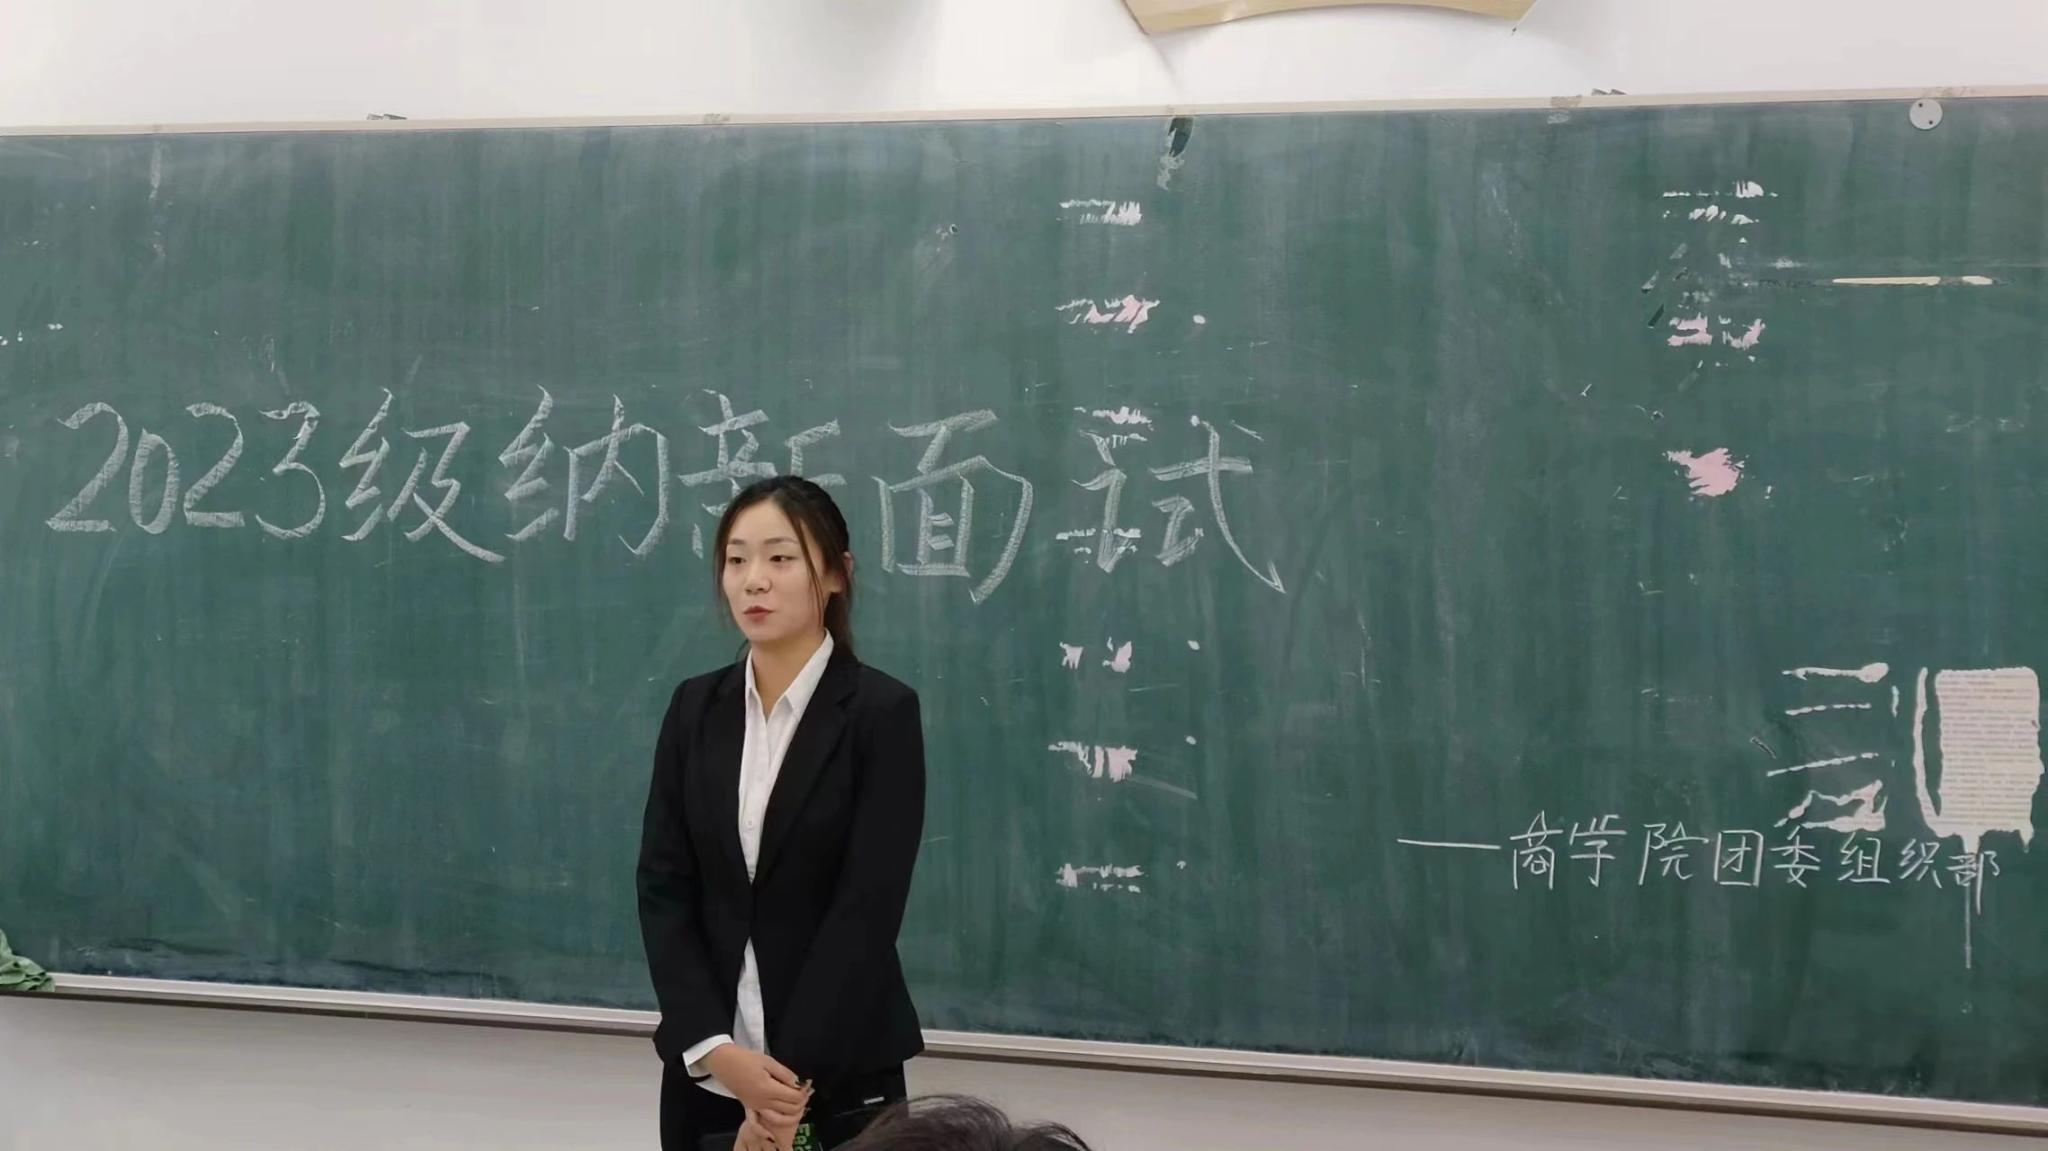 2023级纳新面试
——商学院团委组织部